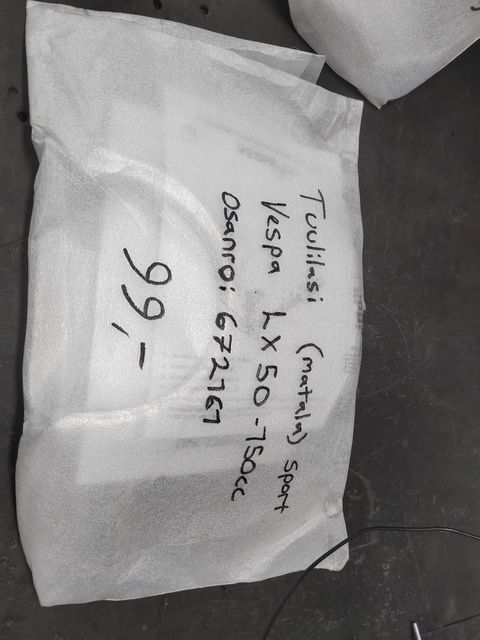 Tuulilasi (matala) Sport
Vespa LX 50 -150cc
Osanro: 672767
99,-